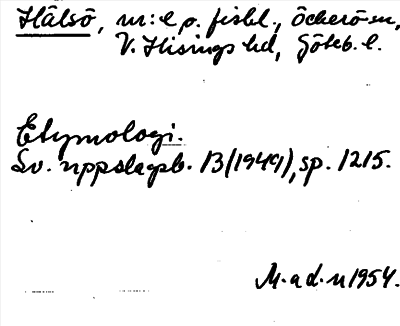 Hälsö, m:e o. fiskel., Öckerö sn,
V. Hisings hd, Göteb. l.
Etymologi.
Sv. uppslagsb. 13(1949), sp. 1215.
M. a d. n 1954.